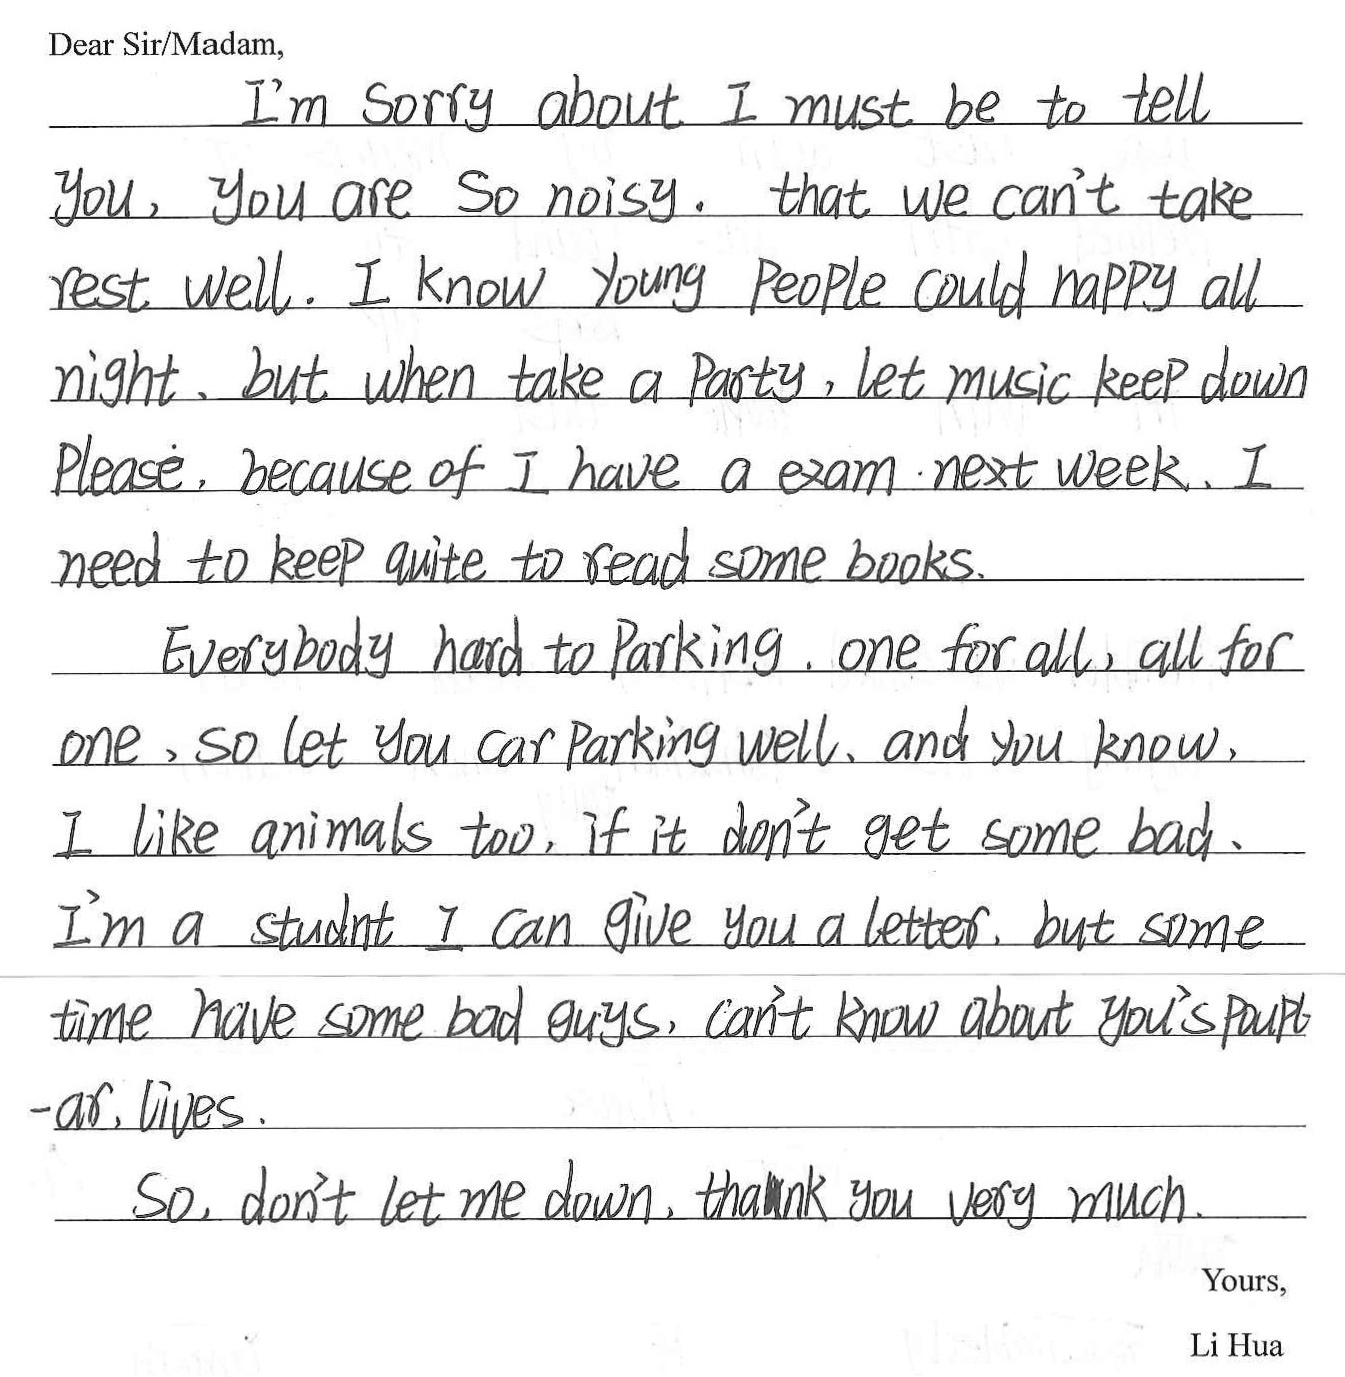 Dear Sir/Madam,
I'm sorry about I must be to tell
you, you are so noisy. that we can't take
rest well. I know young people could happy all
night. but when take a party, let music keep down
please, because of I have a exam next week. I
need to keep quite to read some books.
Everybody hard to parking. one for all, all for
one, so let you car parking well. and you know,
I like animals too, if it don't get some bad.
I'm a studnt I can give you a letter. but some
time have some bad guys, can't know about you's poupl
-ar, lives.
So, don't let me down, thank you very much.
Yours,
Li Hua